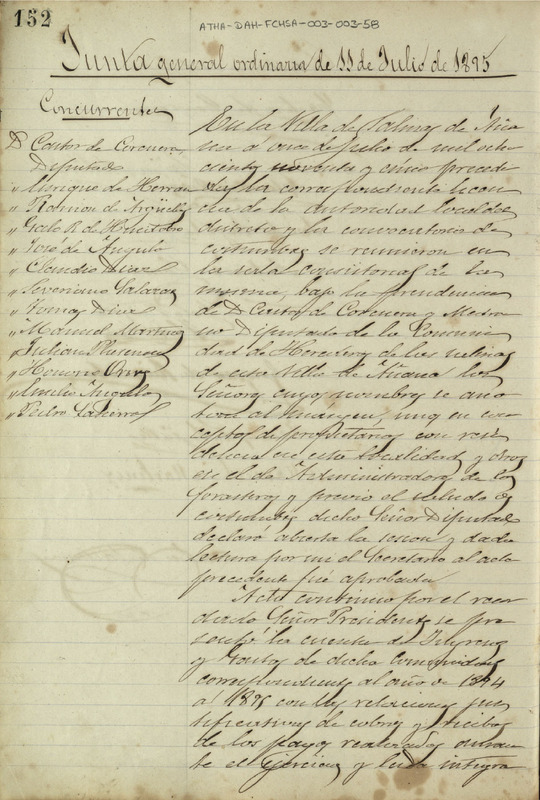 152
ATHA-DAH-FCHSA-003-003-58
Junta general ordinaria de 11 de Julio de 1895
Concurrentes
D Castor de Corcuera,
Diputado
" Enrique de Herran
" Ramon de Argüelles
" José de Angulo
" Claudio Diaz
" Severiano Salazar
" Tomas Diaz
" Manuel Martinez
" Julian Plasencia
" Honorio
" Emilio Angulo
" Pedro
En la Villa de Salinas de Aña
na a once de Julio de mil ocho
cientos noventa y cinco precedi
da la correspondiente licen
cia de la autoridad local del
distrito y la convocatoria de
costumbre se reunieron en
la sala consistorial de la
misma, bajo la presidencia
de D Castor de Corcuera y Medra
no Diputado de la Comuni
dad de Herederos de las salinas
de esta Villa de Añana los
Señores cuyos nombres se ano
tan al margen, unos en con
cepto de propietarios con resi
dencia en esta localidad y otros
en el de Administradores de los
forasteros y previo el saludo de
costumbre dicho Señor Diputado
declaró abierta la sesion y dada
lectura por mi el Secretario al acta
precedente fué aprobada.
Acto continuo por el reca
dicado Señor Presidente se pre
sentó la cuenta de Ingresos
y Gastos de dicha Comunidad
correspondiente al año de 1894
a 1895 con las relaciones jus
tificativas de cobros y recibos
de los pagos realizados duran
te el ejercicio y leida integra